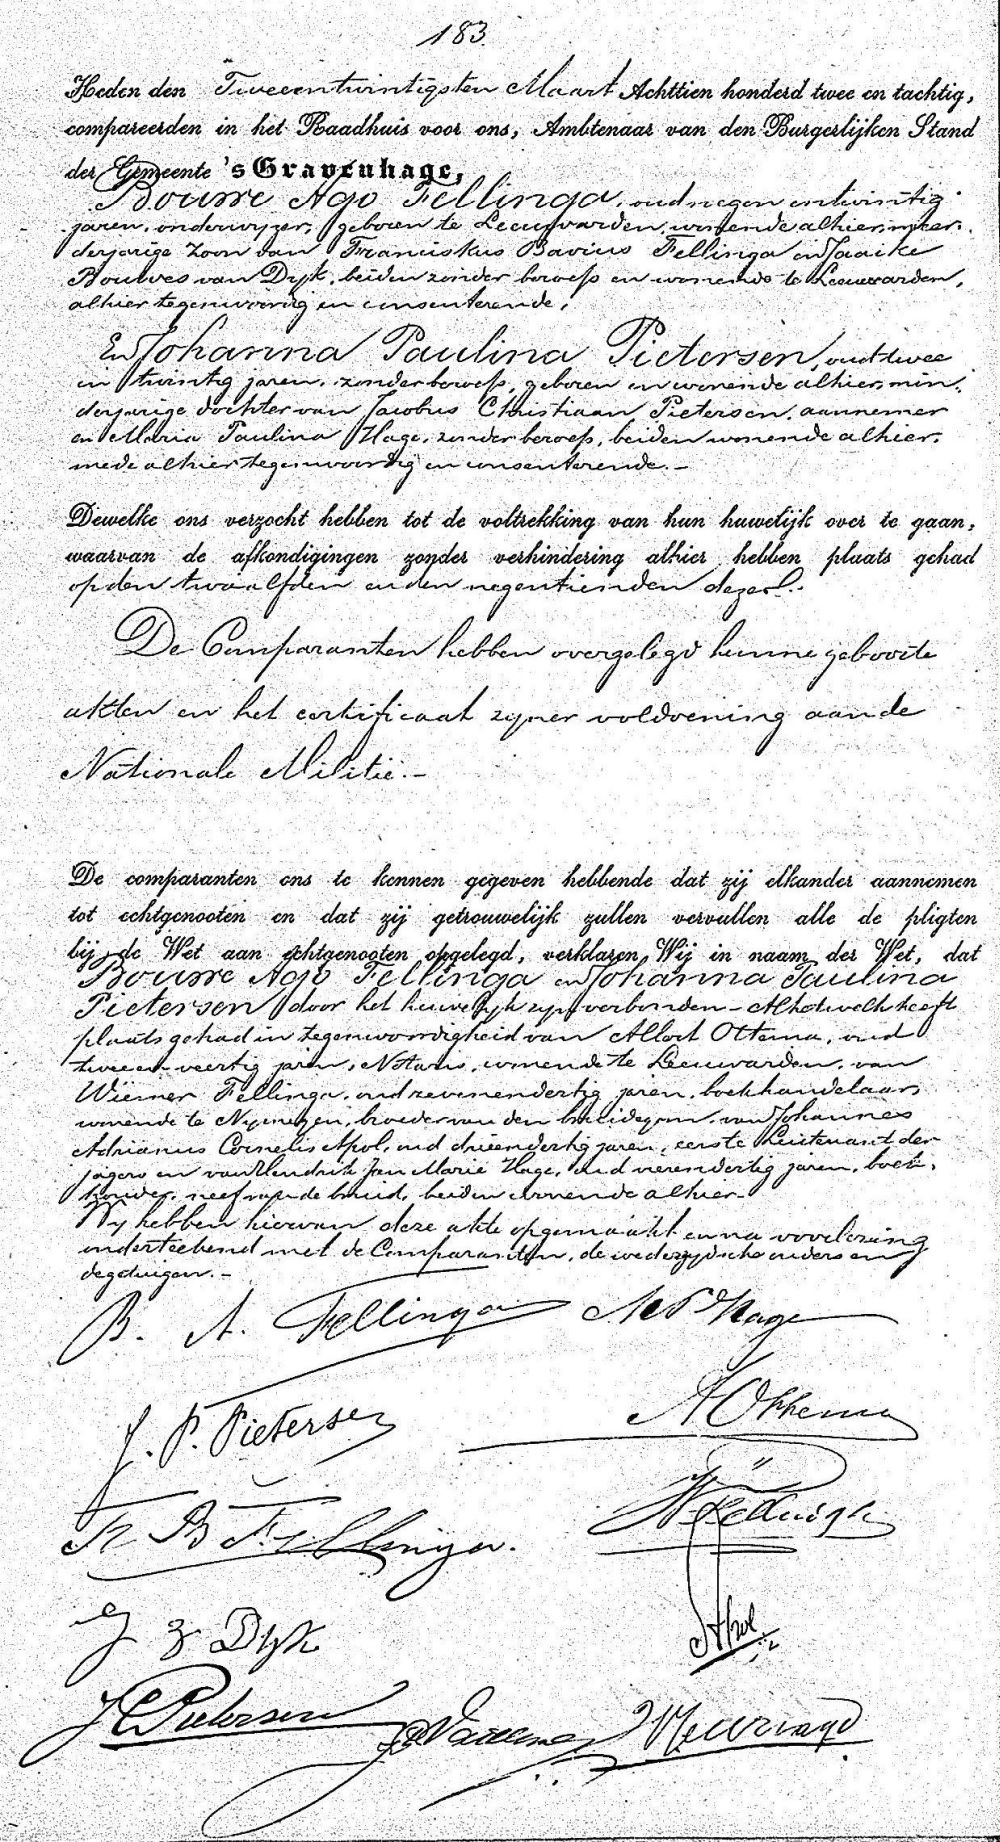 183.
Heden den Tweeentwintigsten Maart Achttien honderd twee en tachtig,
compareerden in het Raadhuis voor ons, Ambtenaar van den Burgerlijken Stand
der Gemeente 's Gravenhage,
Bouwe Ago Fellinga, oud negen entwintig
jaren, onderwyzer, geboren te Leeuwarden, wonende alhier, meer-
derjarige zoon van Franciskus Bavius Fellinga en Jaaike
Bouwes van Dyk, beiden zonder beroep en wonende te Leeuwarden,
alhier tegenwoordig en consenterende;
En Johanna Paulina Pietersen, oud twee
en twintig jaren, zonder beroep, geboren en wonende alhier, min-
derjarige dochter van Jacobus Christiaan Pietersen, aannemer
en Maria Paulina Hage, zonder beroep, beiden wonende alhier,
mede alhier tegenwoordig en consenterende.-
Dewelke ons verzocht hebben tot de voltrekking van hun huwelijk over te gaan,
waarvan de afkondigingen zonder verhindering alhier hebben plaats gehad
op den twaalfden en den negentienden dezer.-
De Comparanten hebben overgelegd hunne geboorte
akten en het certificaat zyner voldoening aan de
Nationale Militie.-
De comparanten ons te kennen gegeven hebbende dat zij elkander aannemen
tot echtgenooten en dat zij getrouwelijk zullen vervullen alle de pligten
bij de Wet aan echtgenooten opgelegd, verklaren Wij in naam der Wet, dat
Bouwe Ago Fellinga en Johanna Paulina
Pietersen door het huwelyk zyn verbonden - Al hetwelk heeft
plaats gehad in tegenwoordigheid van Allert Ottema, oud
twee en veertig jaren, Notaris, wonende te Leeuwarden, van
Wiemer Fellinga, oud zevenendertig jaren, boekhandelaar,
wonende te Nymegen, broeder van den bruidegom, van Johannes
Adrianus Cornelis Apol, oud drieendertig jaren, eerste Luitenant der
jagers en van Hendrik Jan Marie Hage, oud vierendertig jaren, boek-
houder, neef van de bruid, beiden wonende alhier.-
Wy hebben hiervan deze akte opgemaakt en na voorlezing
onderteekend met de Comparanten, de wederzydsche ouders en
de getuigen.-
B. A. Fellinga M P Hage
J. P. Pietersen A Ottema
Fr B Fellinga. W Fellinga
J v Dyk Apol
J C Pietersen